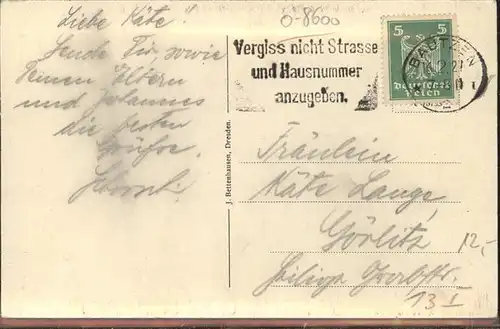 Liebe Käte!
Sende Dir, sowie
Deinen Eltern
und Johannes
die besten
Grüsse.
Horst.
0-8600
Vergiss nicht Strasse
und Hausnummer
anzugeben.
5 5
Deutsches
Reich
BAUTZEN
J. Bettenhausen, Dresden.
Fräulein
Käte Lange,
Görlitz
12,-
13 I